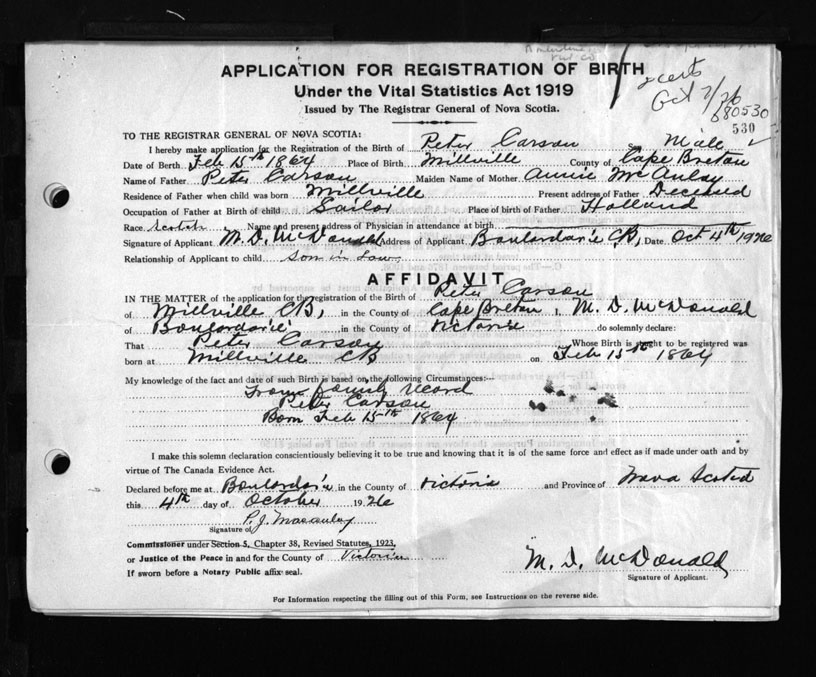 APPLICATION FOR REGISTRATION OF BIRTH
Under the Vital Statistics Act 1919
Issued by The Registrar General of Nova Scotia.
Oct 7/26
680530
530
TO THE REGISTRAR GENERAL OF NOVA SCOTIA:
I hereby make application for the Registration of the Birth of Peter Carson Sex Male
Date of Birth Feb 15th 1864 Place of Birth Millville County of Cape Breton
Name of Father Peter Carson Maiden Name of Mother Annie McAulay
Residence of Father when child was born Millville Present address of Father Deceased
Occupation of Father at Birth of child Sailor Place of birth of Father Holland
Race Scotch Name and present address of Physician in attendance at birth
Signature of Applicant M. D. McDonald Address of Applicant Boulardarie CB, Date Oct 4th 1926
Relationship of Applicant to child son in Law
AFFIDAVIT
IN THE MATTER of the application for the registration of the Birth of Peter Carson
of Millville CB, in the County of Cape Breton I, M. D. McDonald
of Boulardarie in the County of Victoria do solemnly declare:
That Peter Carson Whose Birth is sought to be registered was
born at Millville CB on Feb 15th 1864
My knowledge of the fact and date of such Birth is based on the following Circumstances:--
From family record
Peter Carson
Born Feb 15th 1864
I make this solemn declaration conscientiously believing it to be true and knowing that it is of the same force and effect as if made under oath and by
virtue of The Canada Evidence Act.
Declared before me at Boulardarie in the County of Victoria and Province of Nova Scotia
this 4th day of October 1926
P. J. Macaulay
Signature of
Commissioner under Section 5, Chapter 38, Revised Statutes, 1923,
or Justice of the Peace in and for the County of Victoria
If sworn before a Notary Public affix seal.
M. D. McDonald
Signature of Applicant.
For Information respecting the filling out of this Form, see Instructions on the reverse side.